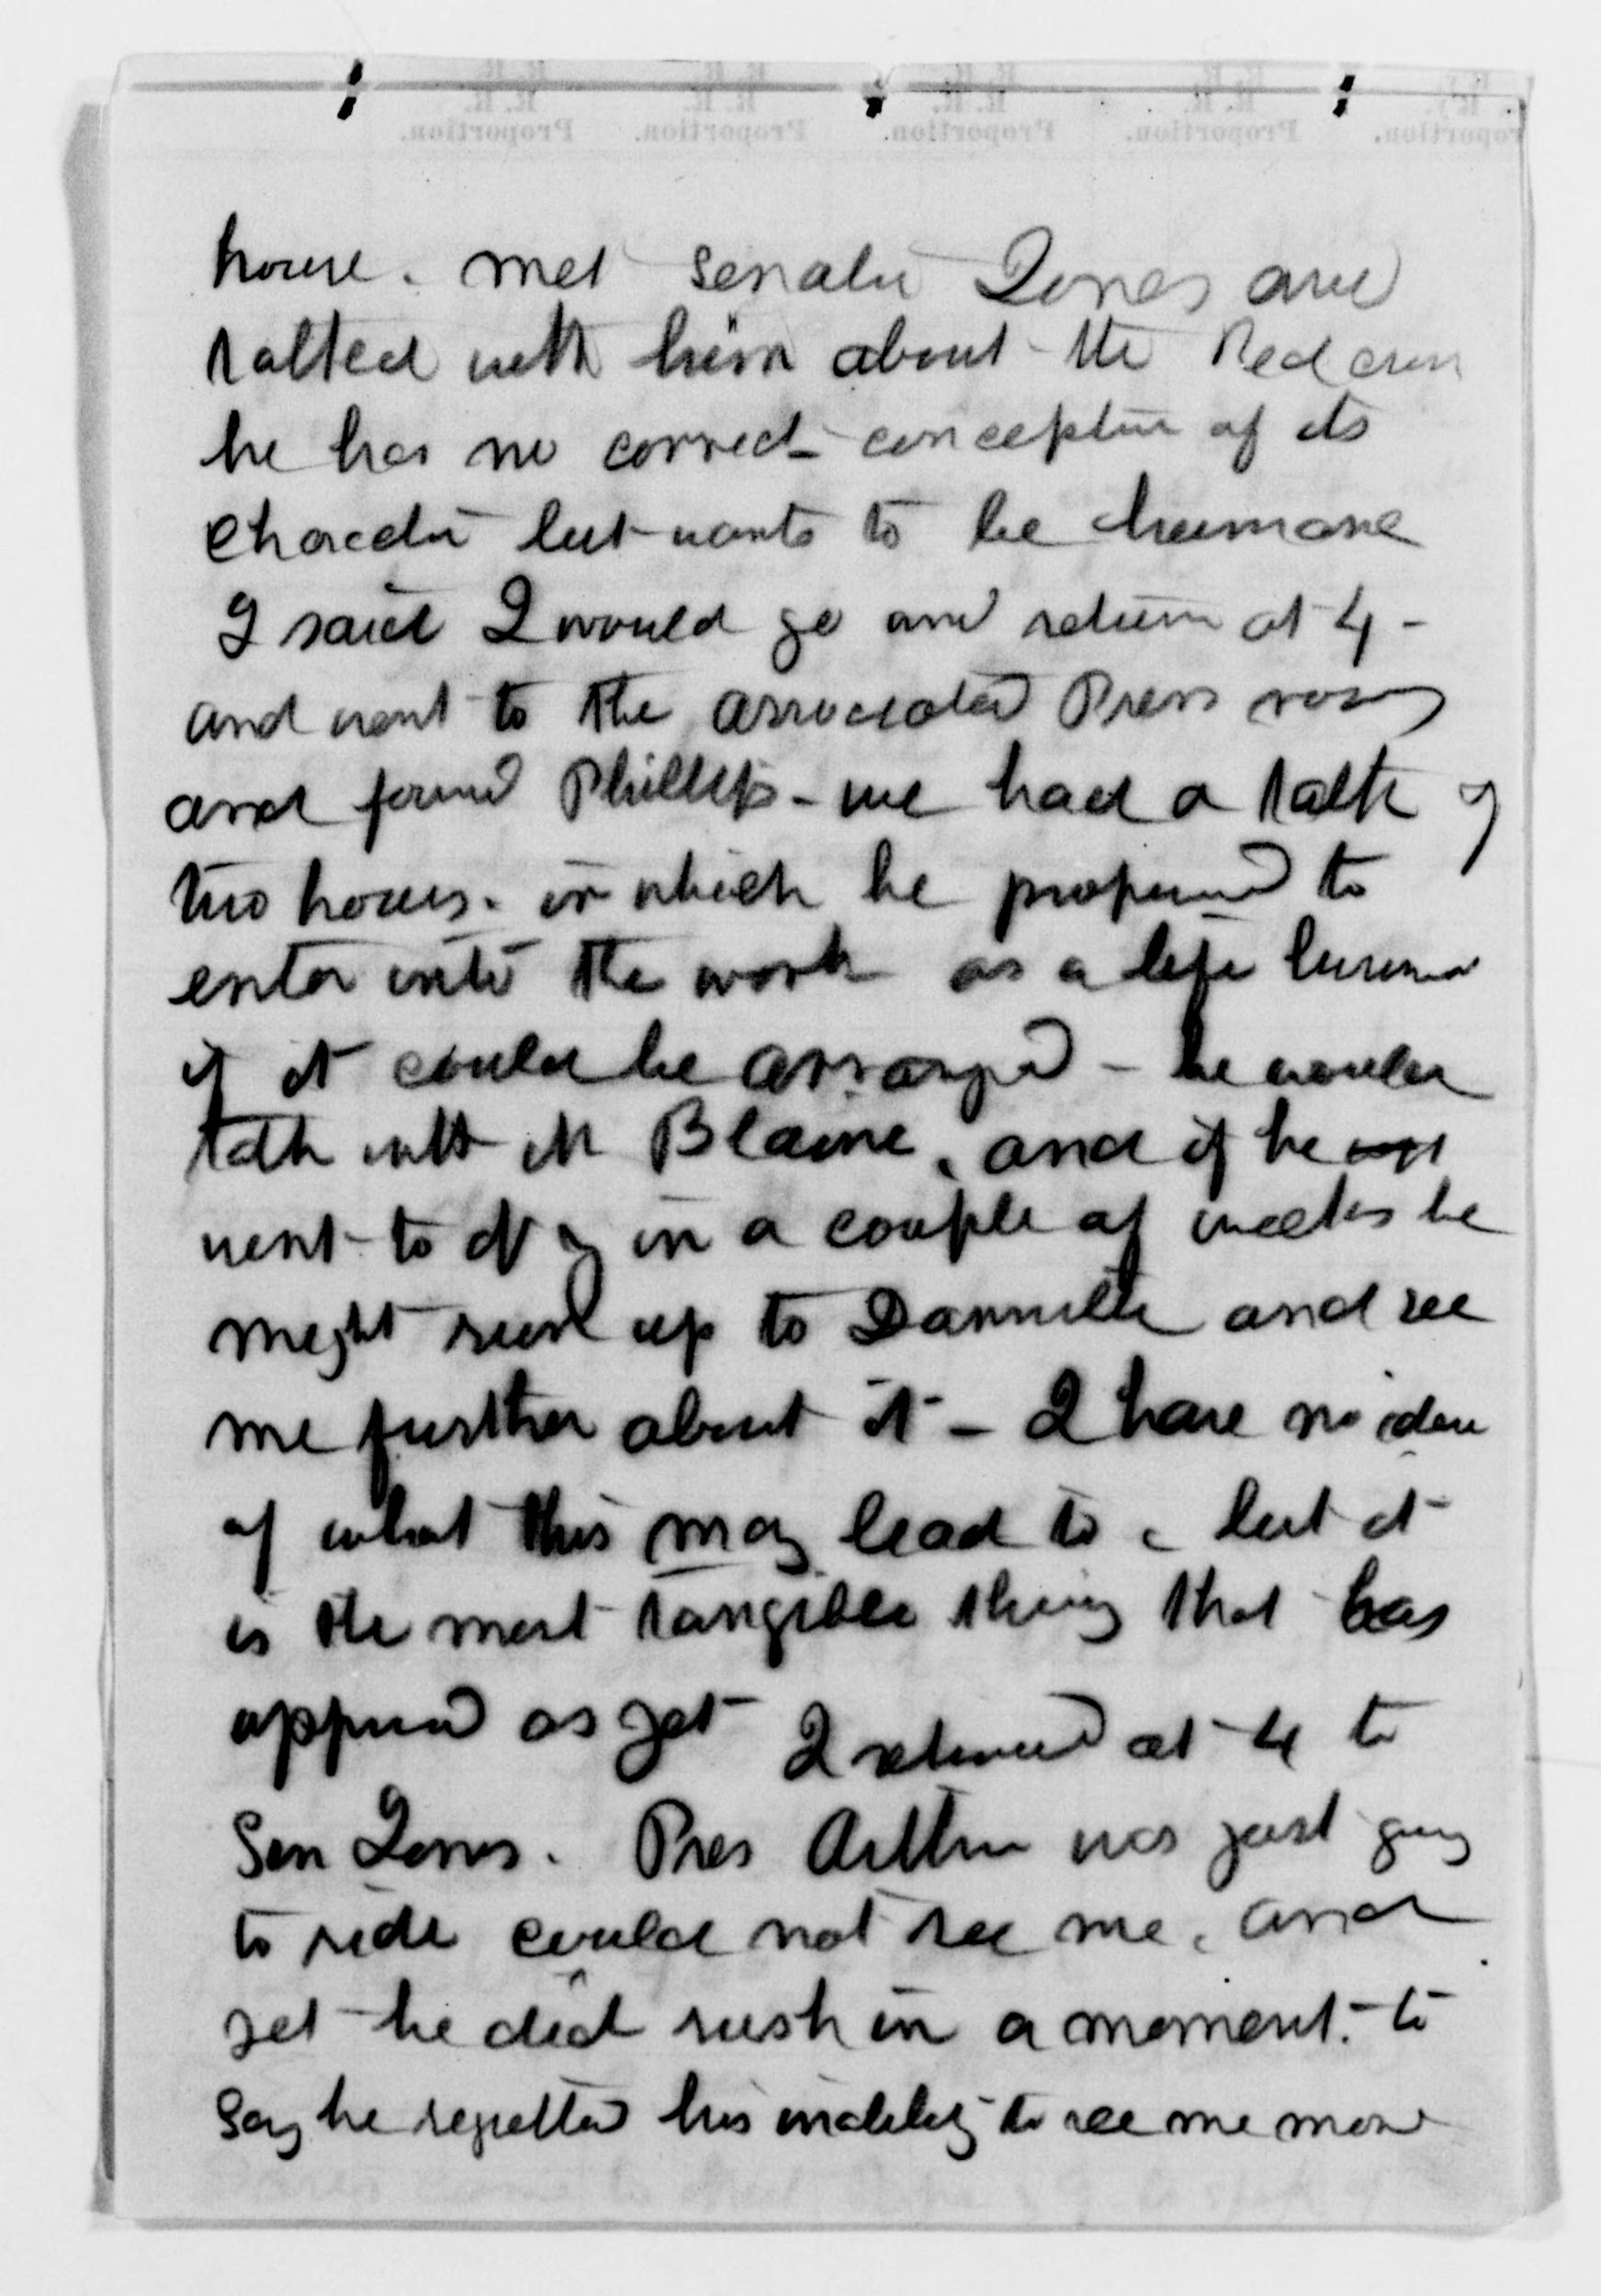 house. met Senator Jones and
talked with him about the Red Cross
he has no correct conception of its
character but wants to be humane
I said I would go and return at 4 -
and went to the associated Press rooms
and found Phillips - we had a talk of
two hours. in which he proposed to
enter into the work as a life business
if it could be arranged - he would
talk with Mr Blaine, and if he
went to N Y in a couple of weeks he
might run up to Dansville and see
me further about it - I have no idea
of what this may lead to - but it
is the most tangible thing that has
appeared as yet I returned at 4 to
Sen Jones. Pres Arthur was just going
to ride could not see me, and
yet he did rush in a moment - to
say he regretted his inability to see me more